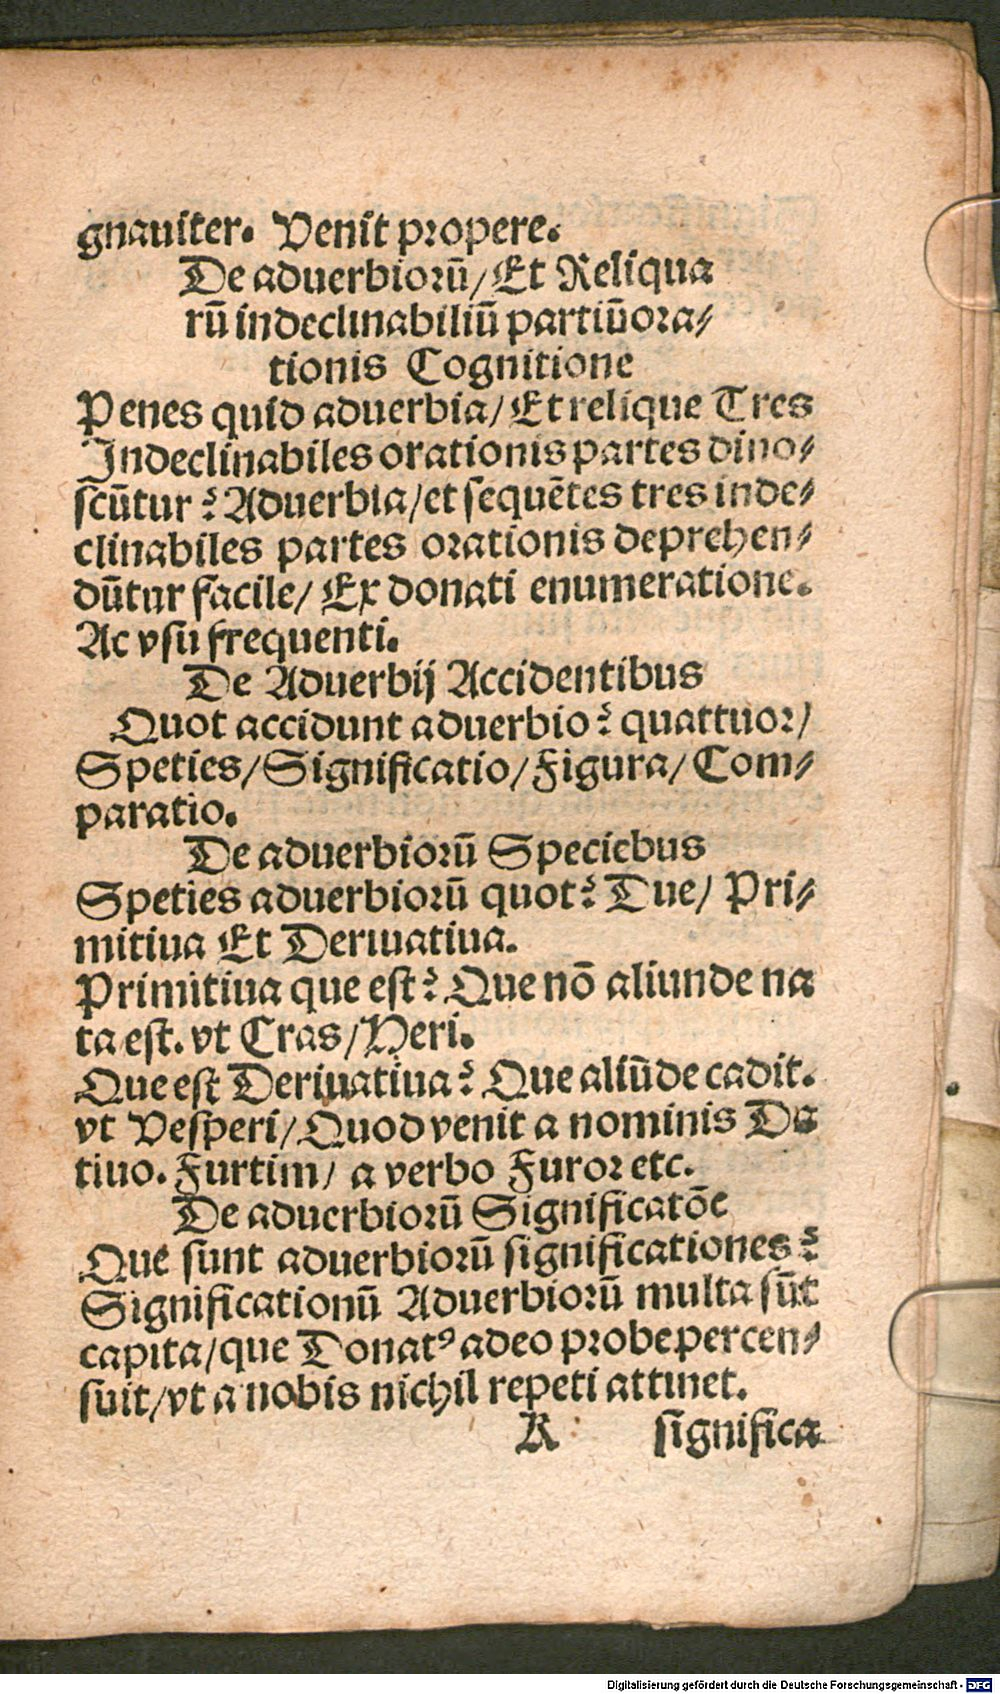 gnauiter. Venit propere.
De aduerbiorū/Et Reliqua
rū indeclinabiliū partiūora⸗
tionis Cognitione
Penes quid aduerbia/Et relique Tres
Indeclinabiles orationis partes dino⸗
scūtur? Aduerbia/et sequētes tres inde⸗
clinabiles partes orationis deprehen⸗
dūtur facile/ Ex donati enumeratione.
Ac vsu frequenti.
De Aduerbij Accidentibus
Quot accidunt aduerbio? quattuor/
Speties/Significatio/Figura/Com⸗
paratio.
De aduerbiorū Speciebus
Speties aduerbiorū quot? Due/ Pri⸗
mitiua Et Deriuatiua.
Primitiua que est? Que nō aliunde na
ta est. vt Cras/Heri.
Que est Deriuatiua? Que aliūde cadit.
vt Vesperi/Quod venit a nominis Da
tiuo. Furtim/ a verbo Furor etc.
De aduerbiorū Significatōe
Que sunt aduerbiorū significationes?
Significationū Aduerbiorū multa sūt
capita/que Donatꝰ adeo probe percen⸗
suit/vt a nobis nichil repeti attinet.
K significa
Digitalisierung gefördert durch die Deutsche Forschungsgemeinschaft - DFG